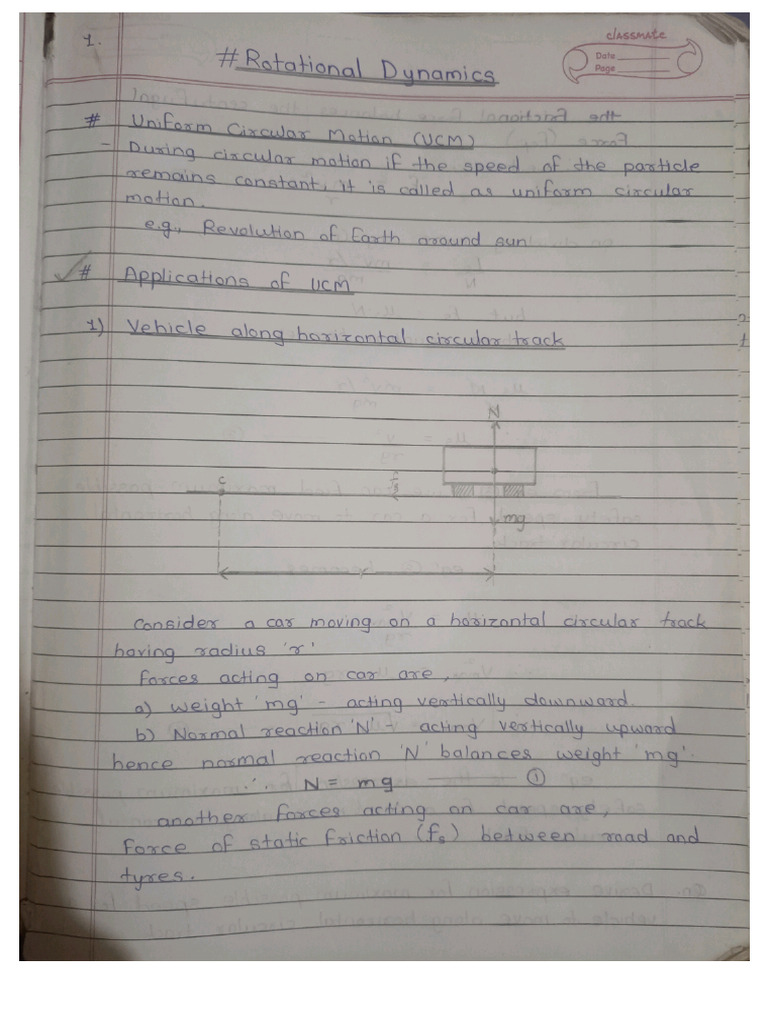 1.
classmate
Date
Page
# Rotational Dynamics
# Uniform Circular Motion (UCM)
- During circular motion if the speed of the particle
remains constant, it is called as uniform circular
motion.
e.g., Revolution of Earth around sun
# Applications of UCM
1) Vehicle along horizontal circular track
N
c
fs
mg
r
Consider a car moving on a horizontal circular track
having radius 'r'
forces acting on car are,
a) weight 'mg' - acting vertically downward.
b) Normal reaction 'N' - acting vertically upward
hence normal reaction 'N' balances weight 'mg'.
∴ N = mg ——— ①
another forces acting on car are,
force of static friction (fs) between road and
tyres.